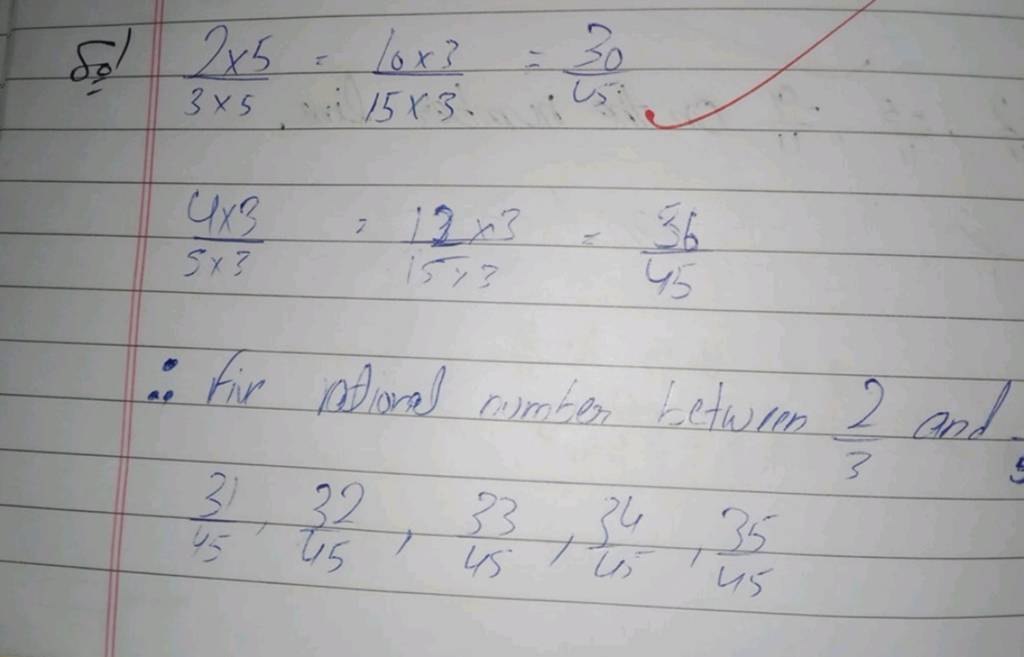 Sol 2×5/3×5 = 10×3/15×3 = 30/45
4×3/5×3 = 12×3/15×3 = 36/45
∴ Five rational number between 2/3 and
31/45, 32/45, 33/45, 34/45, 35/45